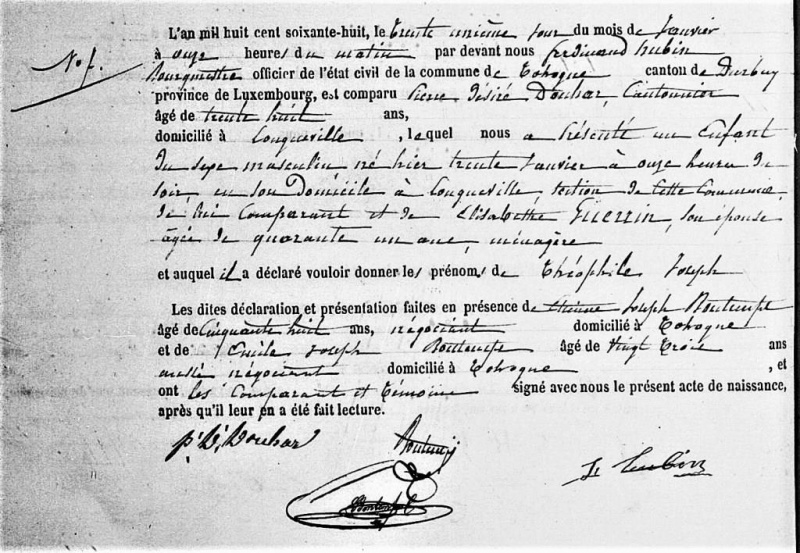 L'an mil huit cent soixante-huit, le trente unième jour du mois de Janvier
à onze heures du matin par devant nous ferdinand hubin
Bourgmestre officier de l'état civil de la commune de Tohogne canton de Durbuy
N° 1.
province de Luxembourg, est comparu Pierre Désiré Douhar, Cantonnier
âgé de trente huit ans,
domicilié à Longueville, lequel nous a Présenté un Enfant
du sexe masculin né hier trente Janvier à onze heures du
soir, en son Domicile à Longueville, section de Cette Commune,
de lui Comparant et de Elisabethe Guerrin, son épouse
agée de quarante un ans, ménagère
et auquel il a déclaré vouloir donner les prénoms de Théophile Joseph
Les dites déclaration et présentation faites en présence de Etienne Joseph Bontemps
âgé de Cinquante huit ans, négociant domicilié à Tohogne
et de Emile Joseph Bontemps âgé de Vingt Trois ans
aussi négociant domicilié à Tohogne, et
ont les Comparant et Témoins signé avec nous le présent acte de naissance,
après qu'il leur en a été fait lecture.
p. D. Douhar Bontemps
F. hubin
Bontemps E